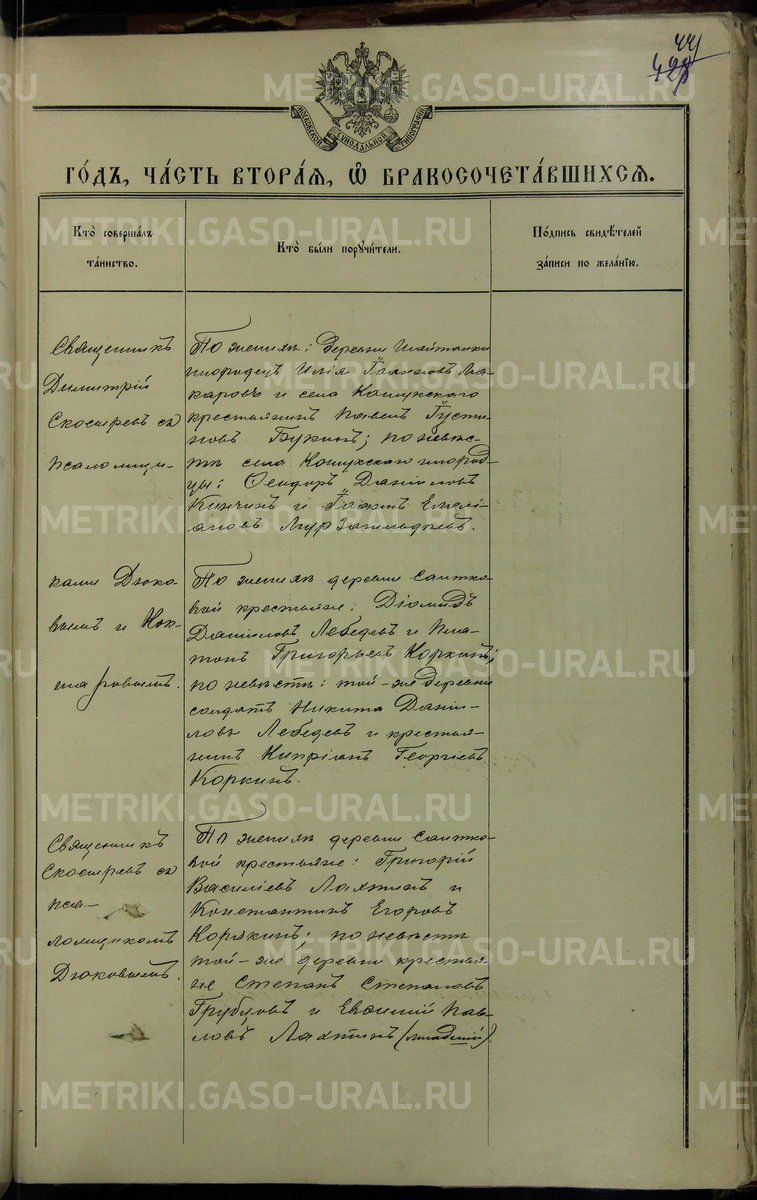 44
428
МОСКОВСКОЙ СѴНОДАЛЬНОЙ ТИПОГРАФІИ
ГО́ДЪ, ЧА́СТЬ ВТОРА́Я, Ѽ БРАКОСОЧЕТА́ВШИХСЯ.
Кто̀ соверша́лъ та́инство.
Кто̀ бы́ли поручи́тели.
По́дпись свидѣ́телей за́писи по жела́нїю.
Священникъ
Димитрій
Скосыревъ съ
псаломщи-
По женихѣ: деревни Шайтанки
инородецъ Илія Іоанновъ Ма-
каровъ и села Кошукскаго
крестьянинъ Павелъ Іусти-
новъ Букинъ; по невѣс-
тѣ села Кошукскаго инород-
цы: Ѳеодоръ Даніиловъ
Кипчинъ и Іоаннъ Емелі-
ановъ
ками Дюко-
вымъ и
По женихѣ деревни Саитко-
вой крестьяне: Діомидъ
Даніиловъ Лебедевъ и Пла-
тонъ Григорьевъ Коркинъ;
по невѣстѣ: той-же деревни
солдатъ Никита Дани-
ловъ Лебедевъ и крестья-
нинъ Кипріанъ Георгіевъ
Коркинъ.
Священникъ
Скосыревъ съ
пса-
ломщикомъ
Дюковымъ.
По женихѣ деревни Саитко-
вой крестьяне: Григорій
Василіевъ Лахтинъ и
Константинъ Егоровъ
Корякинъ; по невѣстѣ
той-же деревни крестья-
не Степанъ Степановъ
Трубцовъ и Евѳимій Пав-
ловъ Лахтинъ (младшій).
METRIKI.GASO-URAL.RU